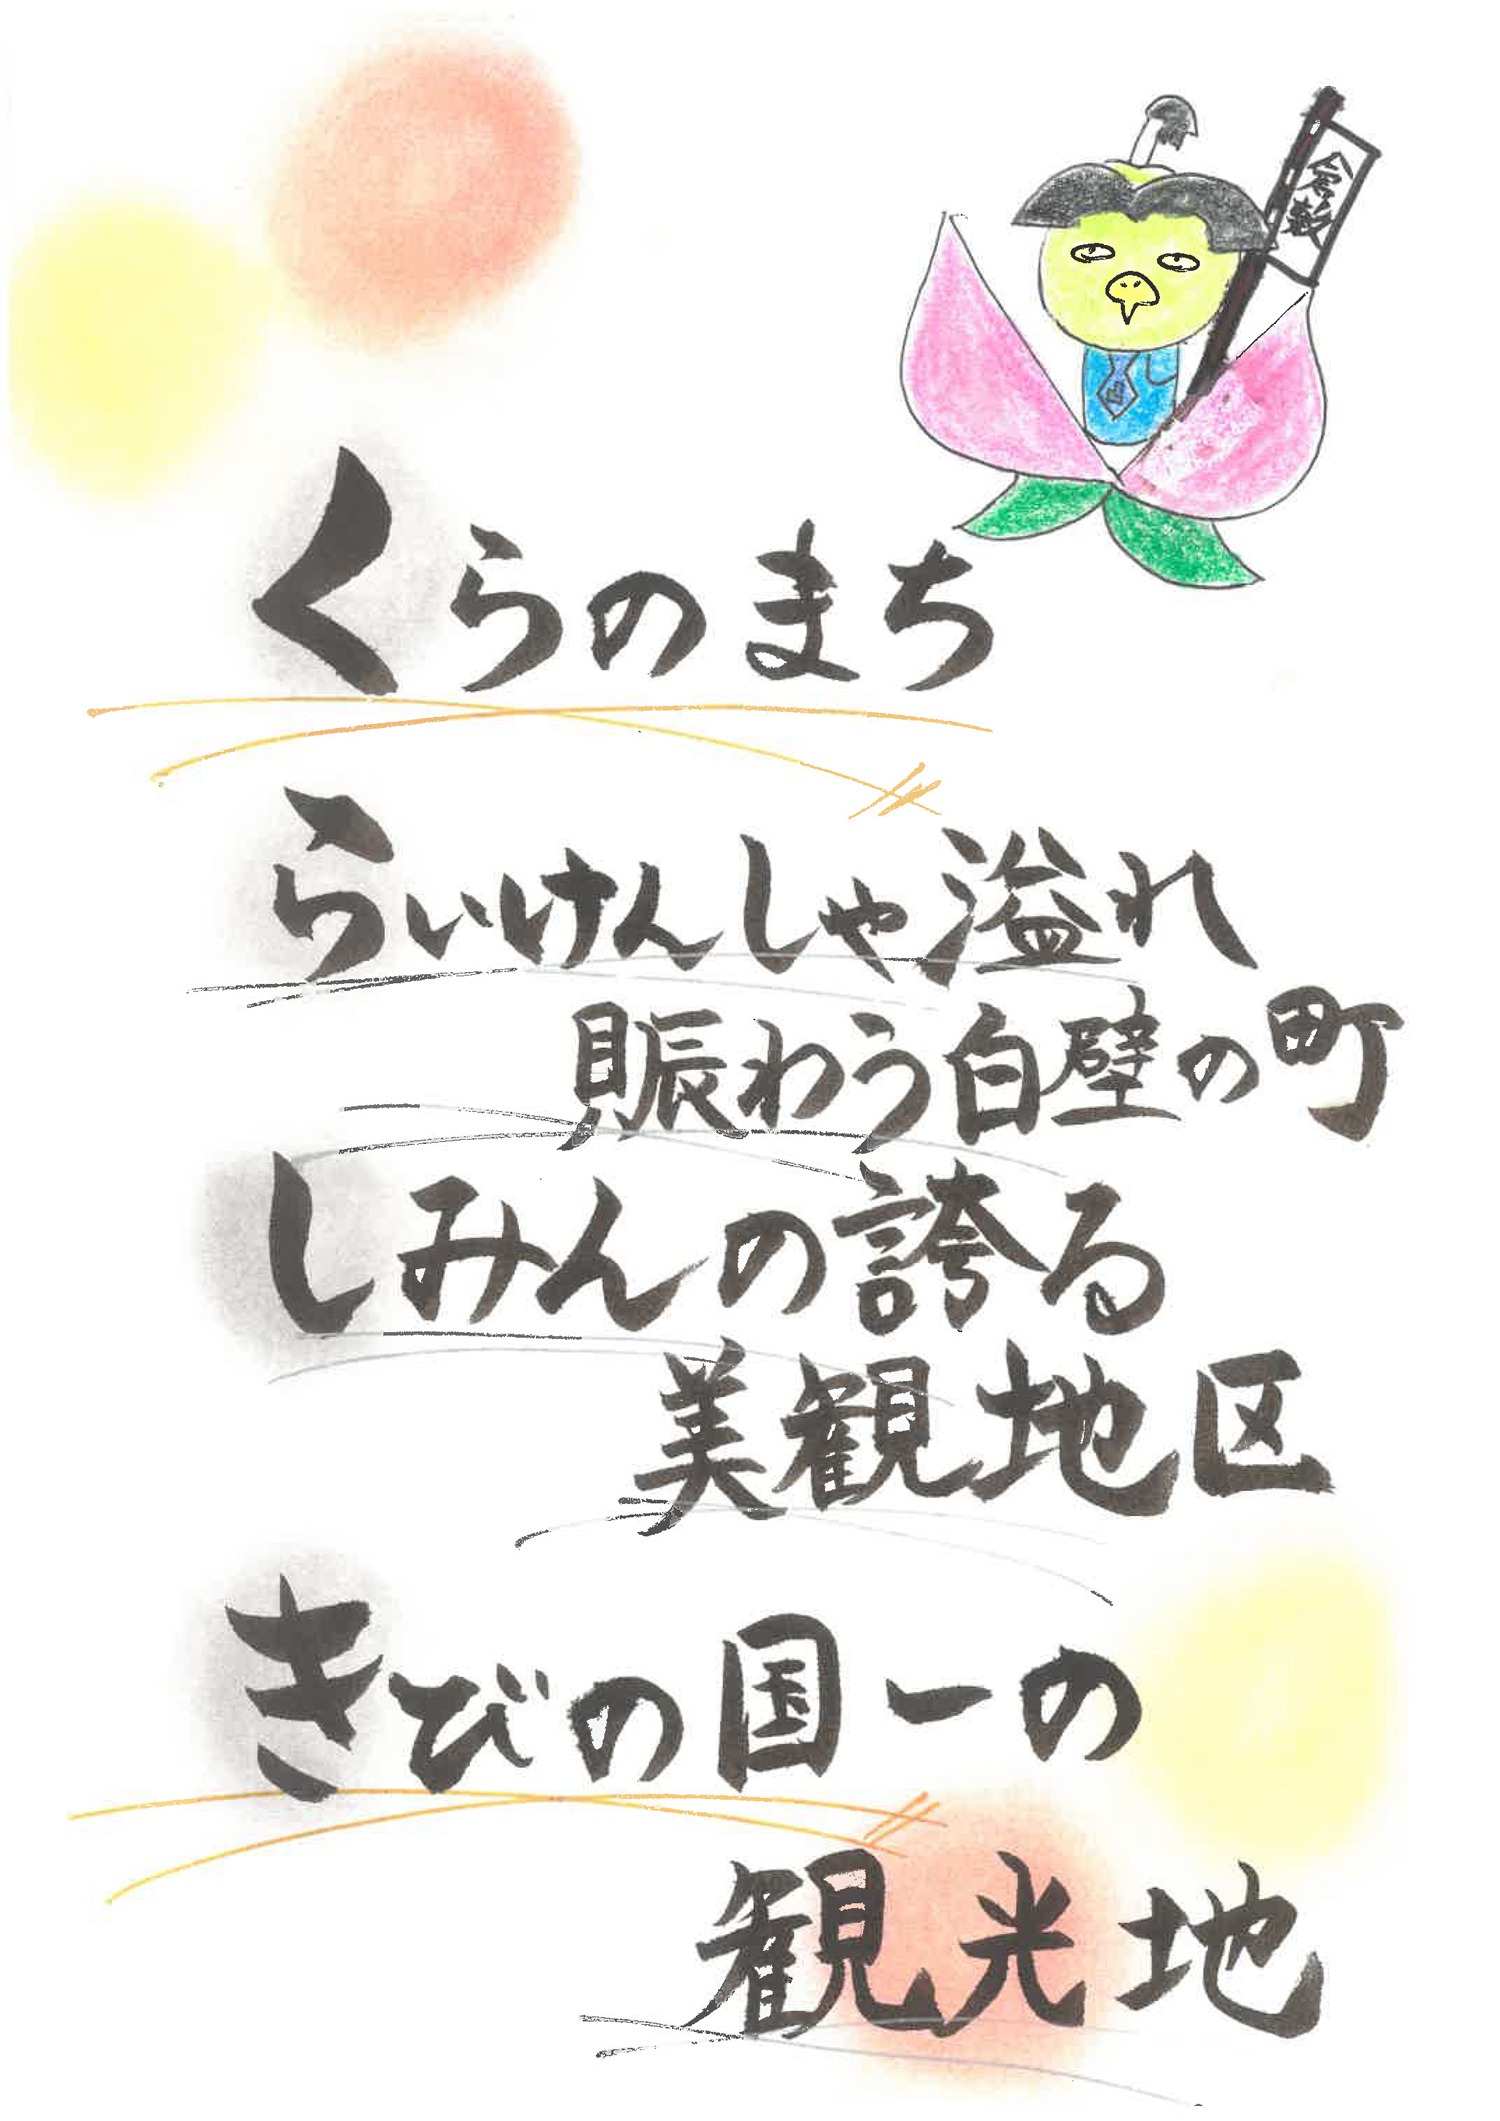 倉敷
くらのまち
らいけんしゃ溢れ
賑わう白壁の町
しみんの誇る
美観地区
きびの国一の
観光地